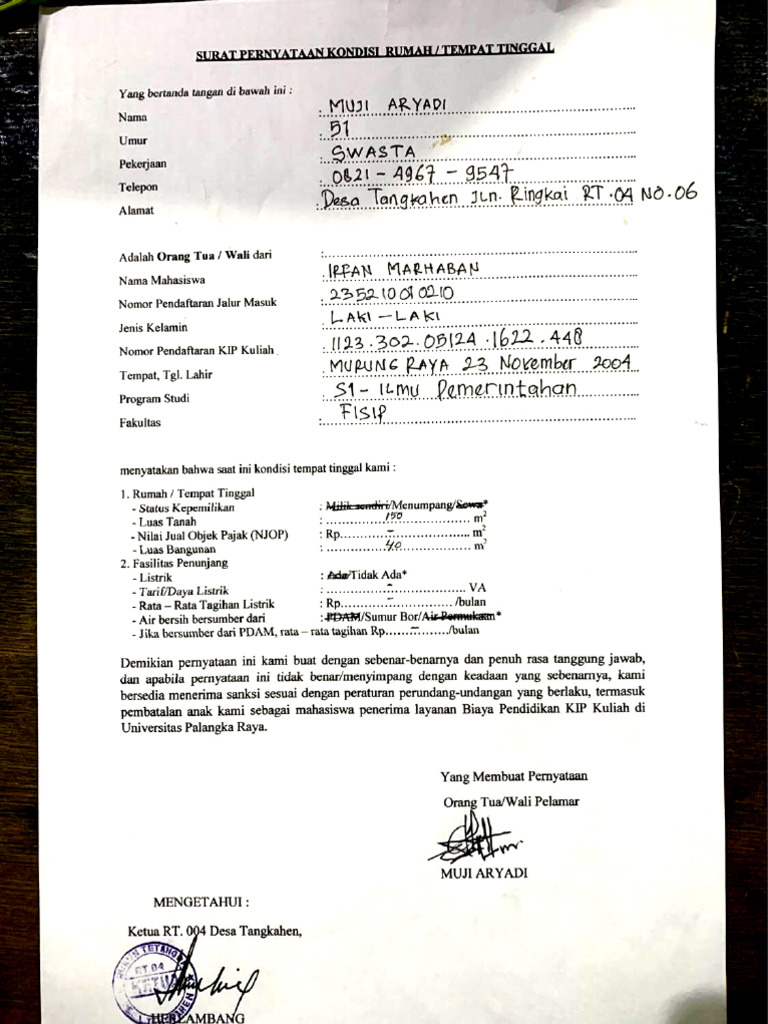 SURAT PERNYATAAN KONDISI RUMAH / TEMPAT TINGGAL
Yang bertanda tangan di bawah ini :
Nama : MUJI ARYADI
Umur : 51
Pekerjaan : SWASTA
Telepon : 0821 - 4967 - 9547
Alamat : Desa Tangkahen Jln. Ringkai RT.04 NO.06
Adalah Orang Tua / Wali dari :
Nama Mahasiswa : IRFAN MARHABAN
Nomor Pendaftaran Jalur Masuk : 235210010210
Jenis Kelamin : LAKI - LAKI
Nomor Pendaftaran KIP Kuliah : 1123.302.05124.1622.448
Tempat, Tgl. Lahir : MURUNG RAYA 23 November 2004
Program Studi : S1 - ILMU Pemerintahan
Fakultas : FISIP
menyatakan bahwa saat ini kondisi tempat tinggal kami :
1. Rumah / Tempat Tinggal
- Status Kepemilikan : Milik sendiri/Menumpang/Sewa*
- Luas Tanah : 150 m²
- Nilai Jual Objek Pajak (NJOP) : Rp. - m²
- Luas Bangunan : 40 m²
2. Fasilitas Penunjang
- Listrik : Ada/Tidak Ada*
- Tarif/Daya Listrik : - VA
- Rata – Rata Tagihan Listrik : Rp. - /bulan
- Air bersih bersumber dari : PDAM/Sumur Bor/Air Permukaan*
- Jika bersumber dari PDAM, rata – rata tagihan Rp. - /bulan
Demikian pernyataan ini kami buat dengan sebenar-benarnya dan penuh rasa tanggung jawab,
dan apabila pernyataan ini tidak benar/menyimpang dengan keadaan yang sebenarnya, kami
bersedia menerima sanksi sesuai dengan peraturan perundang-undangan yang berlaku, termasuk
pembatalan anak kami sebagai mahasiswa penerima layanan Biaya Pendidikan KIP Kuliah di
Universitas Palangka Raya.
Yang Membuat Pernyataan
Orang Tua/Wali Pelamar
MUJI ARYADI
MENGETAHUI :
Ketua RT. 004 Desa Tangkahen,
RT 04
KETUA
HERLAMBANG